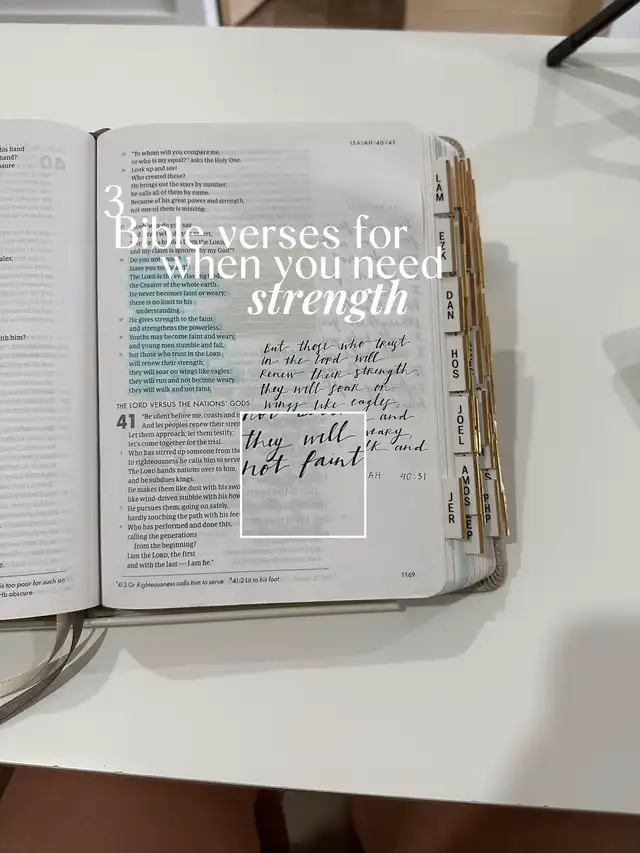 his hand
hand?
asure
ales;
ith him?
is too poor for such an
Hb obscure
ISAIAH 40–41
"To whom will you compare me,
or who is my equal?" asks the Holy One.
Look up and see!
Who created these?
He brings out the stars by number;
he calls all of them by name.
Because of his great power and strength,
not one of them is missing.
and my claim is ignored by my God"?
3
Bible verses for
when you need
strength
Do you not
Have you
The LORD is the
the Creator of the whole earth.
He never becomes faint or weary;
there is no limit to his
understanding.
He gives strength to the faint
and strengthens the powerless.
Youths may become faint and weary,
and young men stumble and fall,
but those who trust in the LORD
will renew their strength;
they will soar on wings like eagles;
they will run and not become weary,
they will walk and not faint.
THE LORD VERSUS THE NATIONS' GODS
41 "Be silent before me, coasts and
And let peoples renew their
Let them approach; let them testify;
let's come together for the trial.
Who has stirred up someone from the
In righteousness he calls him to serve
The LORD hands nations over to him,
and he subdues kings.
He makes them like dust with his
like wind-driven stubble with his bow
He pursues them, going on safely,
hardly touching the path with his
Who has performed and done this,
calling the generations
from the beginning?
I am the LORD, the first
and with the last — I am he."
41:2 Or Righteousness calls him to serve
41:2 Lit to his foot
1169
But those who trust
in the Lord will
renew their strength,
they will soar on
wings like eagles,
and
weary,
and
40:31
they will
not faint
LAM
EZK
DAN
HOS
JOEL
AMOS
JER
EP
PHP